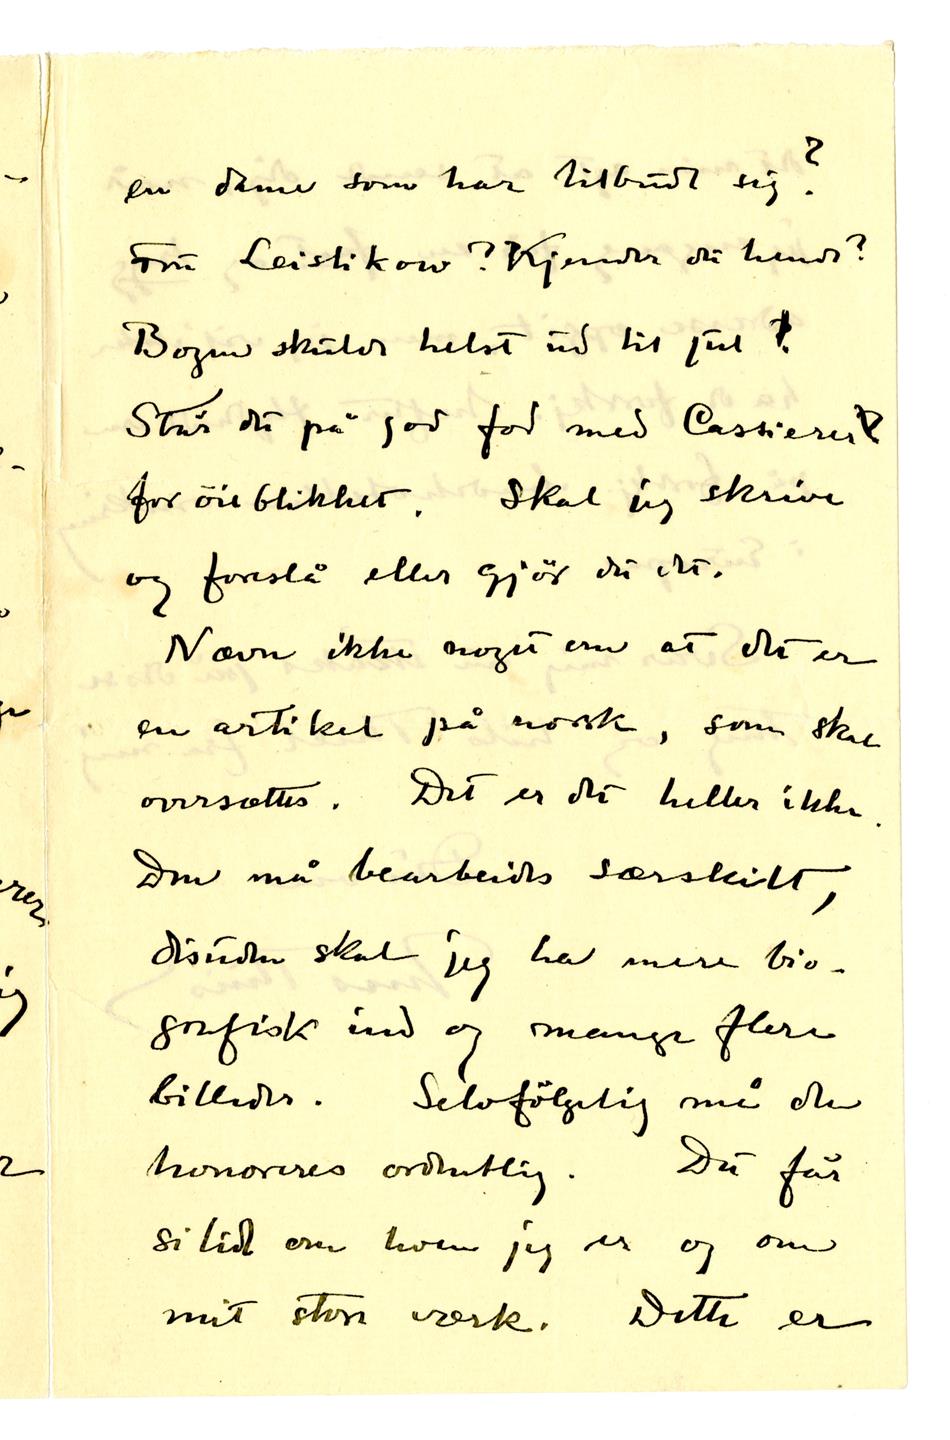 en dame som har tilbudt sig?
Fru Leistikow? Kjender du hende?
Bogen skulde helst ud til jul.
Står du på god fod med Cassierer
for öieblikket. Skal jeg skrive
og foreslå eller gjör du det.
Nævn ikke noget om at det er
en artikel på norsk, som skal
oversættes. Det er det heller ikke.
Den må bearbeides særskilt,
desuden skal jeg ha mere bio-
grafisk ind og mange flere
billeder. Selvfölgelig må den
honoreres ordentlig. Du får
si lidt om hvem jeg er og om
mit store værk. Dette er